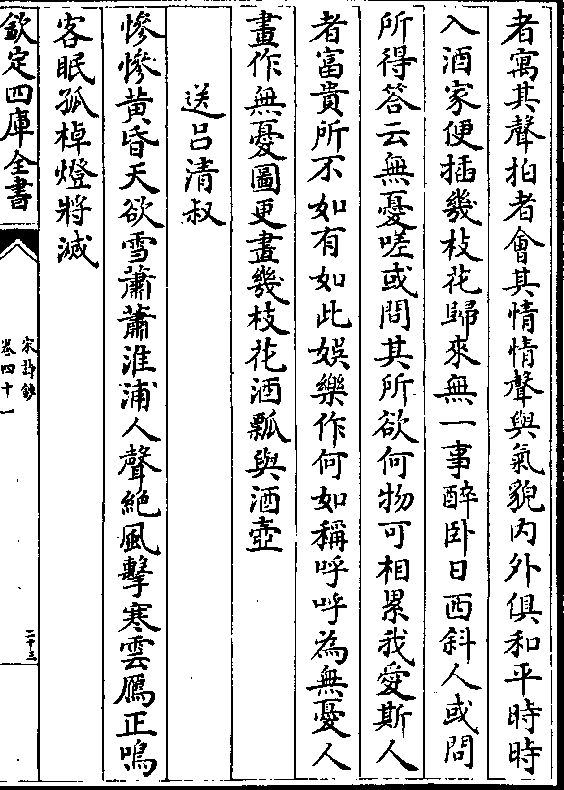 者寓其聲拍者會其情情聲與氣貌内外俱和平時時
入酒家便插幾枝花歸來無一事醉卧日西斜人或問
所得答云無憂嗟或問其所欲何物可相累我愛斯人
者富貴所不如有如此娯樂作何如稱呼呼為無憂人
畫作無憂圖更畫幾枝花酒瓢與酒壺
送吕清叔
慘慘黄昏天欲雪蕭蕭淮浦人聲絶風擊寒雲鴈正鳴
客眠孤棹燈將滅
欽定四庫全書
宋詩鈔
卷四十一
二十三